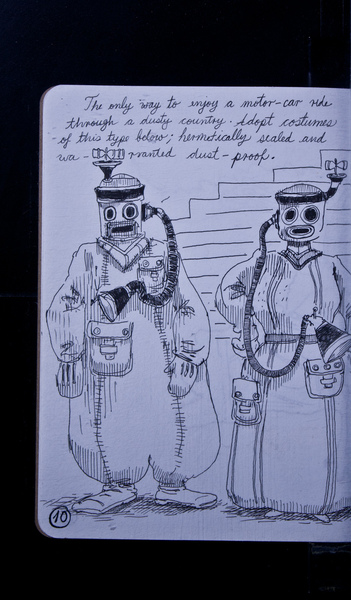 The only way to enjoy a motor-car ride
through a dusty country. Adopt costumes
of this type below; hermetically sealed and
wa-rranted dust-proof.
10